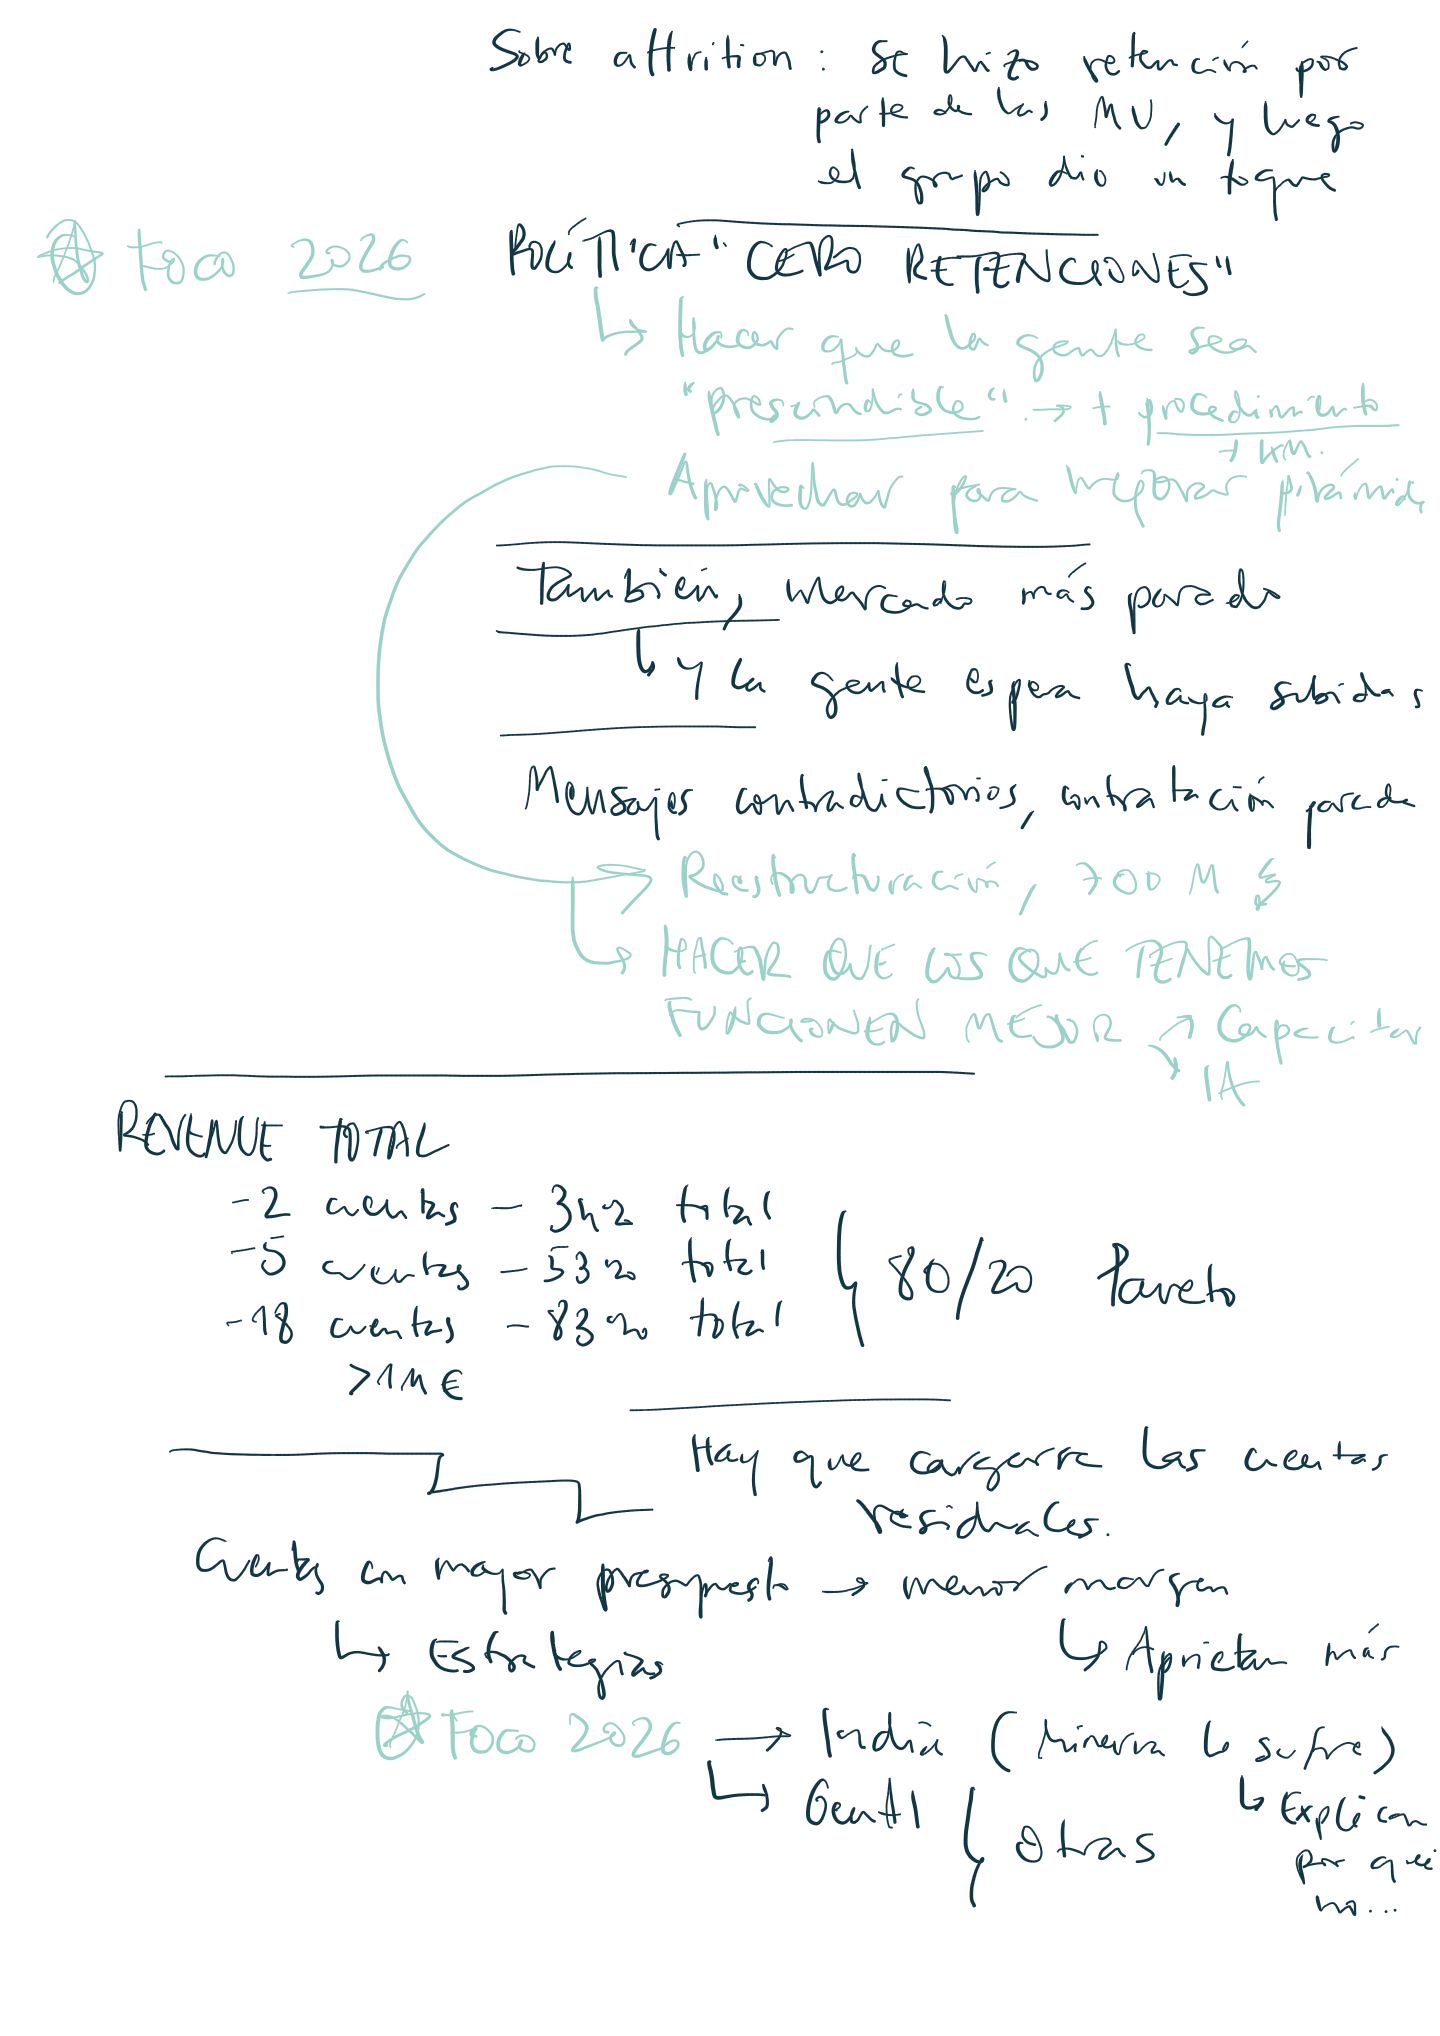 Sobre attrition: se hizo retención por
parte de las MU, y luego
el grupo dio un toque
Foco 2026
POLÍTICA "CERO RETENCIONES"
↳ Hacer que la gente sea
"prescindible" → + procedimiento
+ KM.
Aprovechar para mejorar pirámide
También, mercado más parado
↳ y la gente espera haya subidas
Mensajes contradictorios, contratación parada
→ Reestructuración, 700 M
↳ HACER QUE LOS QUE TENEMOS
FUNCIONEN MEJOR ↗ Capacitar
↘ IA
REVENUE TOTAL
- 2 cuentas - 34% total
- 5 cuentas - 53% total
- 18 cuentas - 83% total
80/20 Pareto
>1M€
Hay que cargarse las cuentas
residuales.
Cuentas con mayor presupuesto → menor margen
↳ Estrategias
↳ Aprietan más
Foco 2026 → India (Minerva lo sufre)
↳ GenAI } otras
↳ Explican
por qué
no...